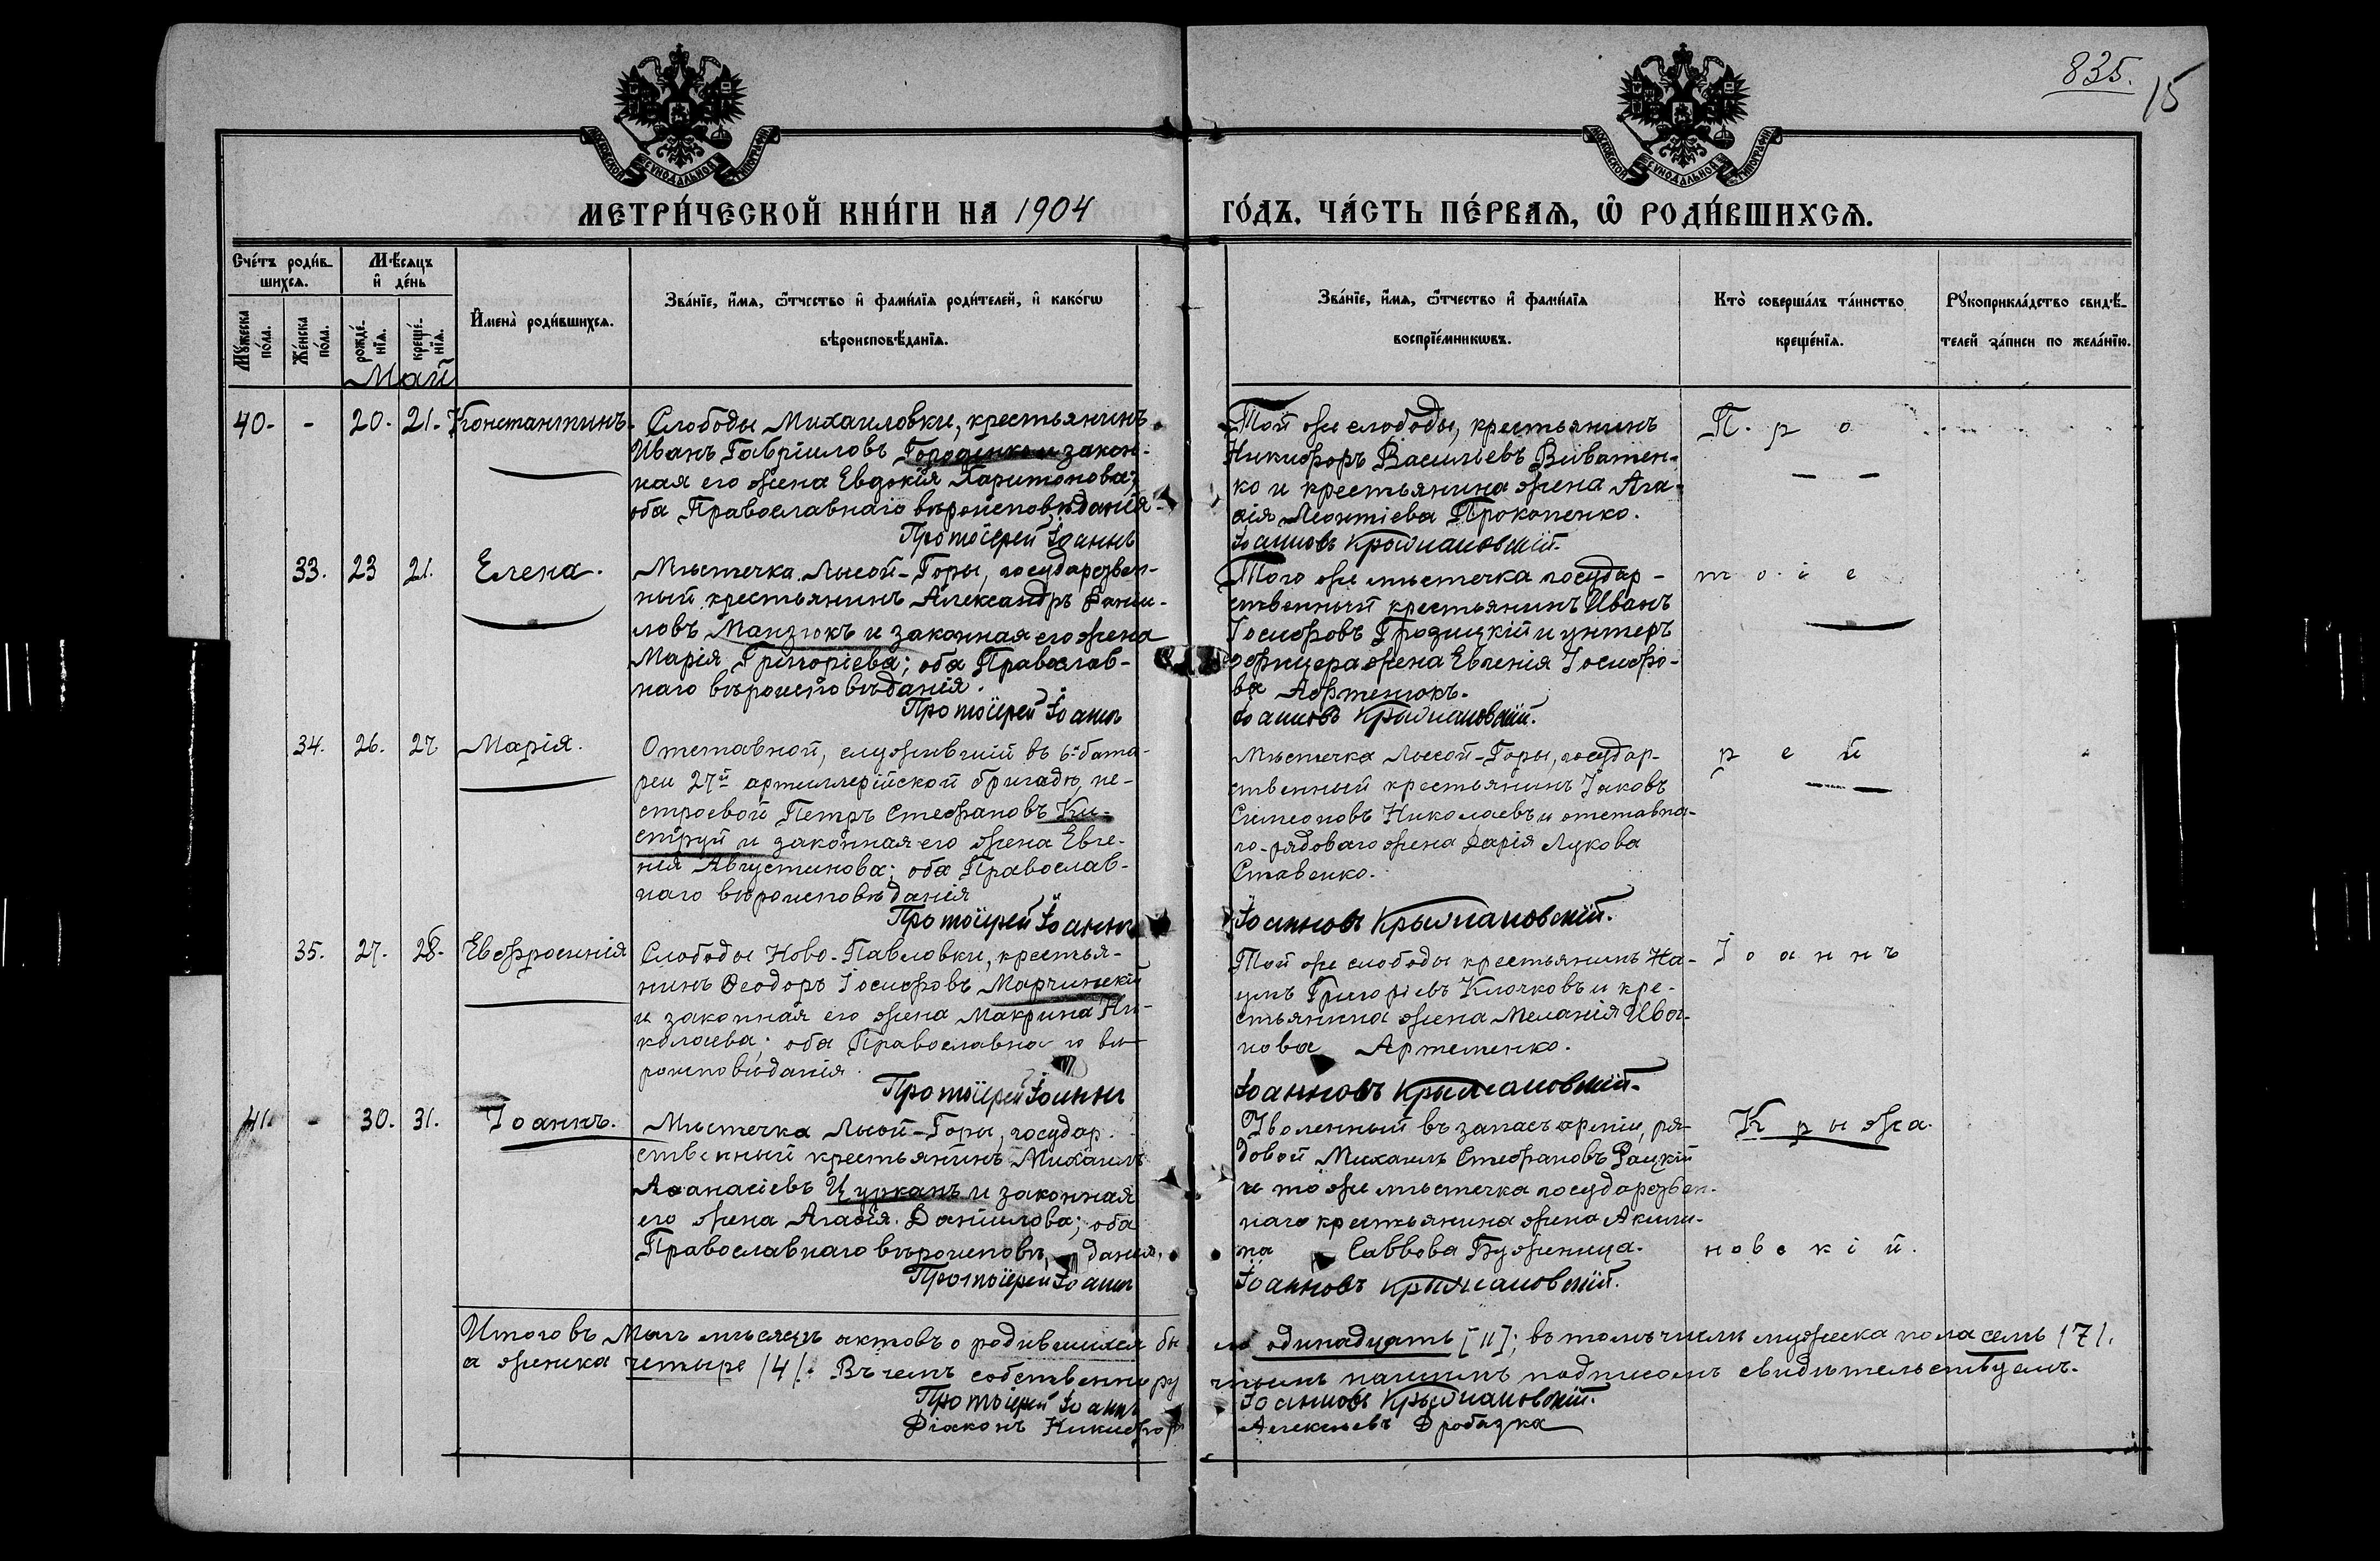 835.
15
МОСКОВСКОЙ СѴНОДАЛЬНОЙ ТИПОГРАФІИ
МОСКОВСКОЙ СѴНОДАЛЬНОЙ ТИПОГРАФІИ
МЕТРИ́ЧЕСКОЙ КНИ́ГИ НА 1904
ГО́ДЪ, ЧА́СТЬ ПЕ́РВАЯ, Ѿ РОДИ́ВШИХСЯ.
Сче́тъ роди́в-
шихся.
Мѣ́сяцъ
и҆ де́нь
Мꙋ́жеска по́ла.
Же́нска по́ла.
рожде́-нїя.
креще́-нїя.
И҆мена̀ роди́вшихся.
Зва́нїе, и҆́мя, ѻ҆́тчество и҆ фами́лїя роди́телей, и҆ како́гѡ
вѣроисповѣ́данїя.
Зва́нїе, и҆́мя, ѻ҆́тчество и҆ фами́лїя
воспрїе́мникѡвъ.
Кто̀ соверша́лъ та́инство
креще́нїя.
Рꙋкоприкла́дство свидѣ́-
телей за́писи по жела́нїю.
Май
40. - 20. 21. Константинъ.
Слободы Михаиловки, крестьянинъ
Иванъ Гавріиловъ Городенко и закон-
ная его жена Евдокія Харитонова;
оба Православнаго вѣроисповѣданія.
Протоіерей Іоаннъ
Той же слободы, крестьянинъ
Никифоръ Васильевъ Виватен-
ко и крестьянина жена Ага-
ѳія Леонтіева Прокопенко.
Іоанновъ Крыжановскій.
П р о
33. 23 21. Елена.
Мѣстечка Лысой-Горы, государствен-
ный крестьянинъ Александръ Даніи-
ловъ Манзюкъ и законная его жена
Марія Григоріева; оба Православ-
наго вѣроисповѣданія.
Протоіерей Іоаннъ
Того же мѣстечка государ-
ственный крестьянинъ Иванъ
Іосифовъ Гродзицкій и унтеръ
офицера жена Евгенія Іосифо-
ва
Іоанновъ Крыжановскій.
т о і е
34. 26. 27 Марія.
Отставной, служившій въ 6й бата-
реи 27й артиллерійской бригадѣ, не-
строевой Петръ Стефановъ Ки-
струй и законная его жена Евге-
нія Августинова; оба Православ-
наго вѣроисповѣданія
Протоіерей Іоаннъ
Мѣстечка Лысой-Горы, государ-
ственный крестьянинъ Іаковъ
Симеоновъ Николаевъ и отставна-
го рядоваго жена Дарія Лукова
Ставенко.
Іоанновъ Крыжановскій.
р е й
35. 27. 28. Евфросинія
Слободы Ново-Павловки, крестья-
нинъ Ѳеодоръ Іосифовъ Марчинскій
и законная его жена Макрина Ни-
колаева; оба Православнаго вѣ-
роисповѣданія.
Протоіерей Іоаннъ
Той же слободы крестьянинъ На-
умъ Григоріевъ Клочковъ и кре-
стьянина жена Меланія Ива-
нова Артеменко.
Іоанновъ Крыжановскій.
І о а н н ъ
41. - 30. 31. Іоаннъ.
Мѣстечка Лысой-Горы, государ-
ственный крестьянинъ Михаилъ
Аѳанасіевъ Цурканъ и законная
его жена Агаѳія Даніилова; оба
Православнаго вѣроисповѣданія.
Протоіерей Іоаннъ
Уволенный въ запасъ арміи, ря-
довой Михаилъ Стефановъ Рацкій
и то же мѣстечка государствен-
наго крестьянина жена Акили-
на Саввова Буженица.
Іоанновъ Крыжановскій.
К р ы ж а
н о в с к і й.
Итого въ Маѣ мѣсяцѣ актовъ о родившихся бы
ло одинадцать [11]; въ томъ числѣ мужеска пола семь /7/.
а женска четыре /4/. Въ чемъ собственнору
чнымъ нашимъ подписомъ свидѣтельствуемъ.
Протоіерей Іоаннъ
Іоанновъ Крыжановскій.
Діаконъ Никифоръ
Алексѣевъ Дробязка